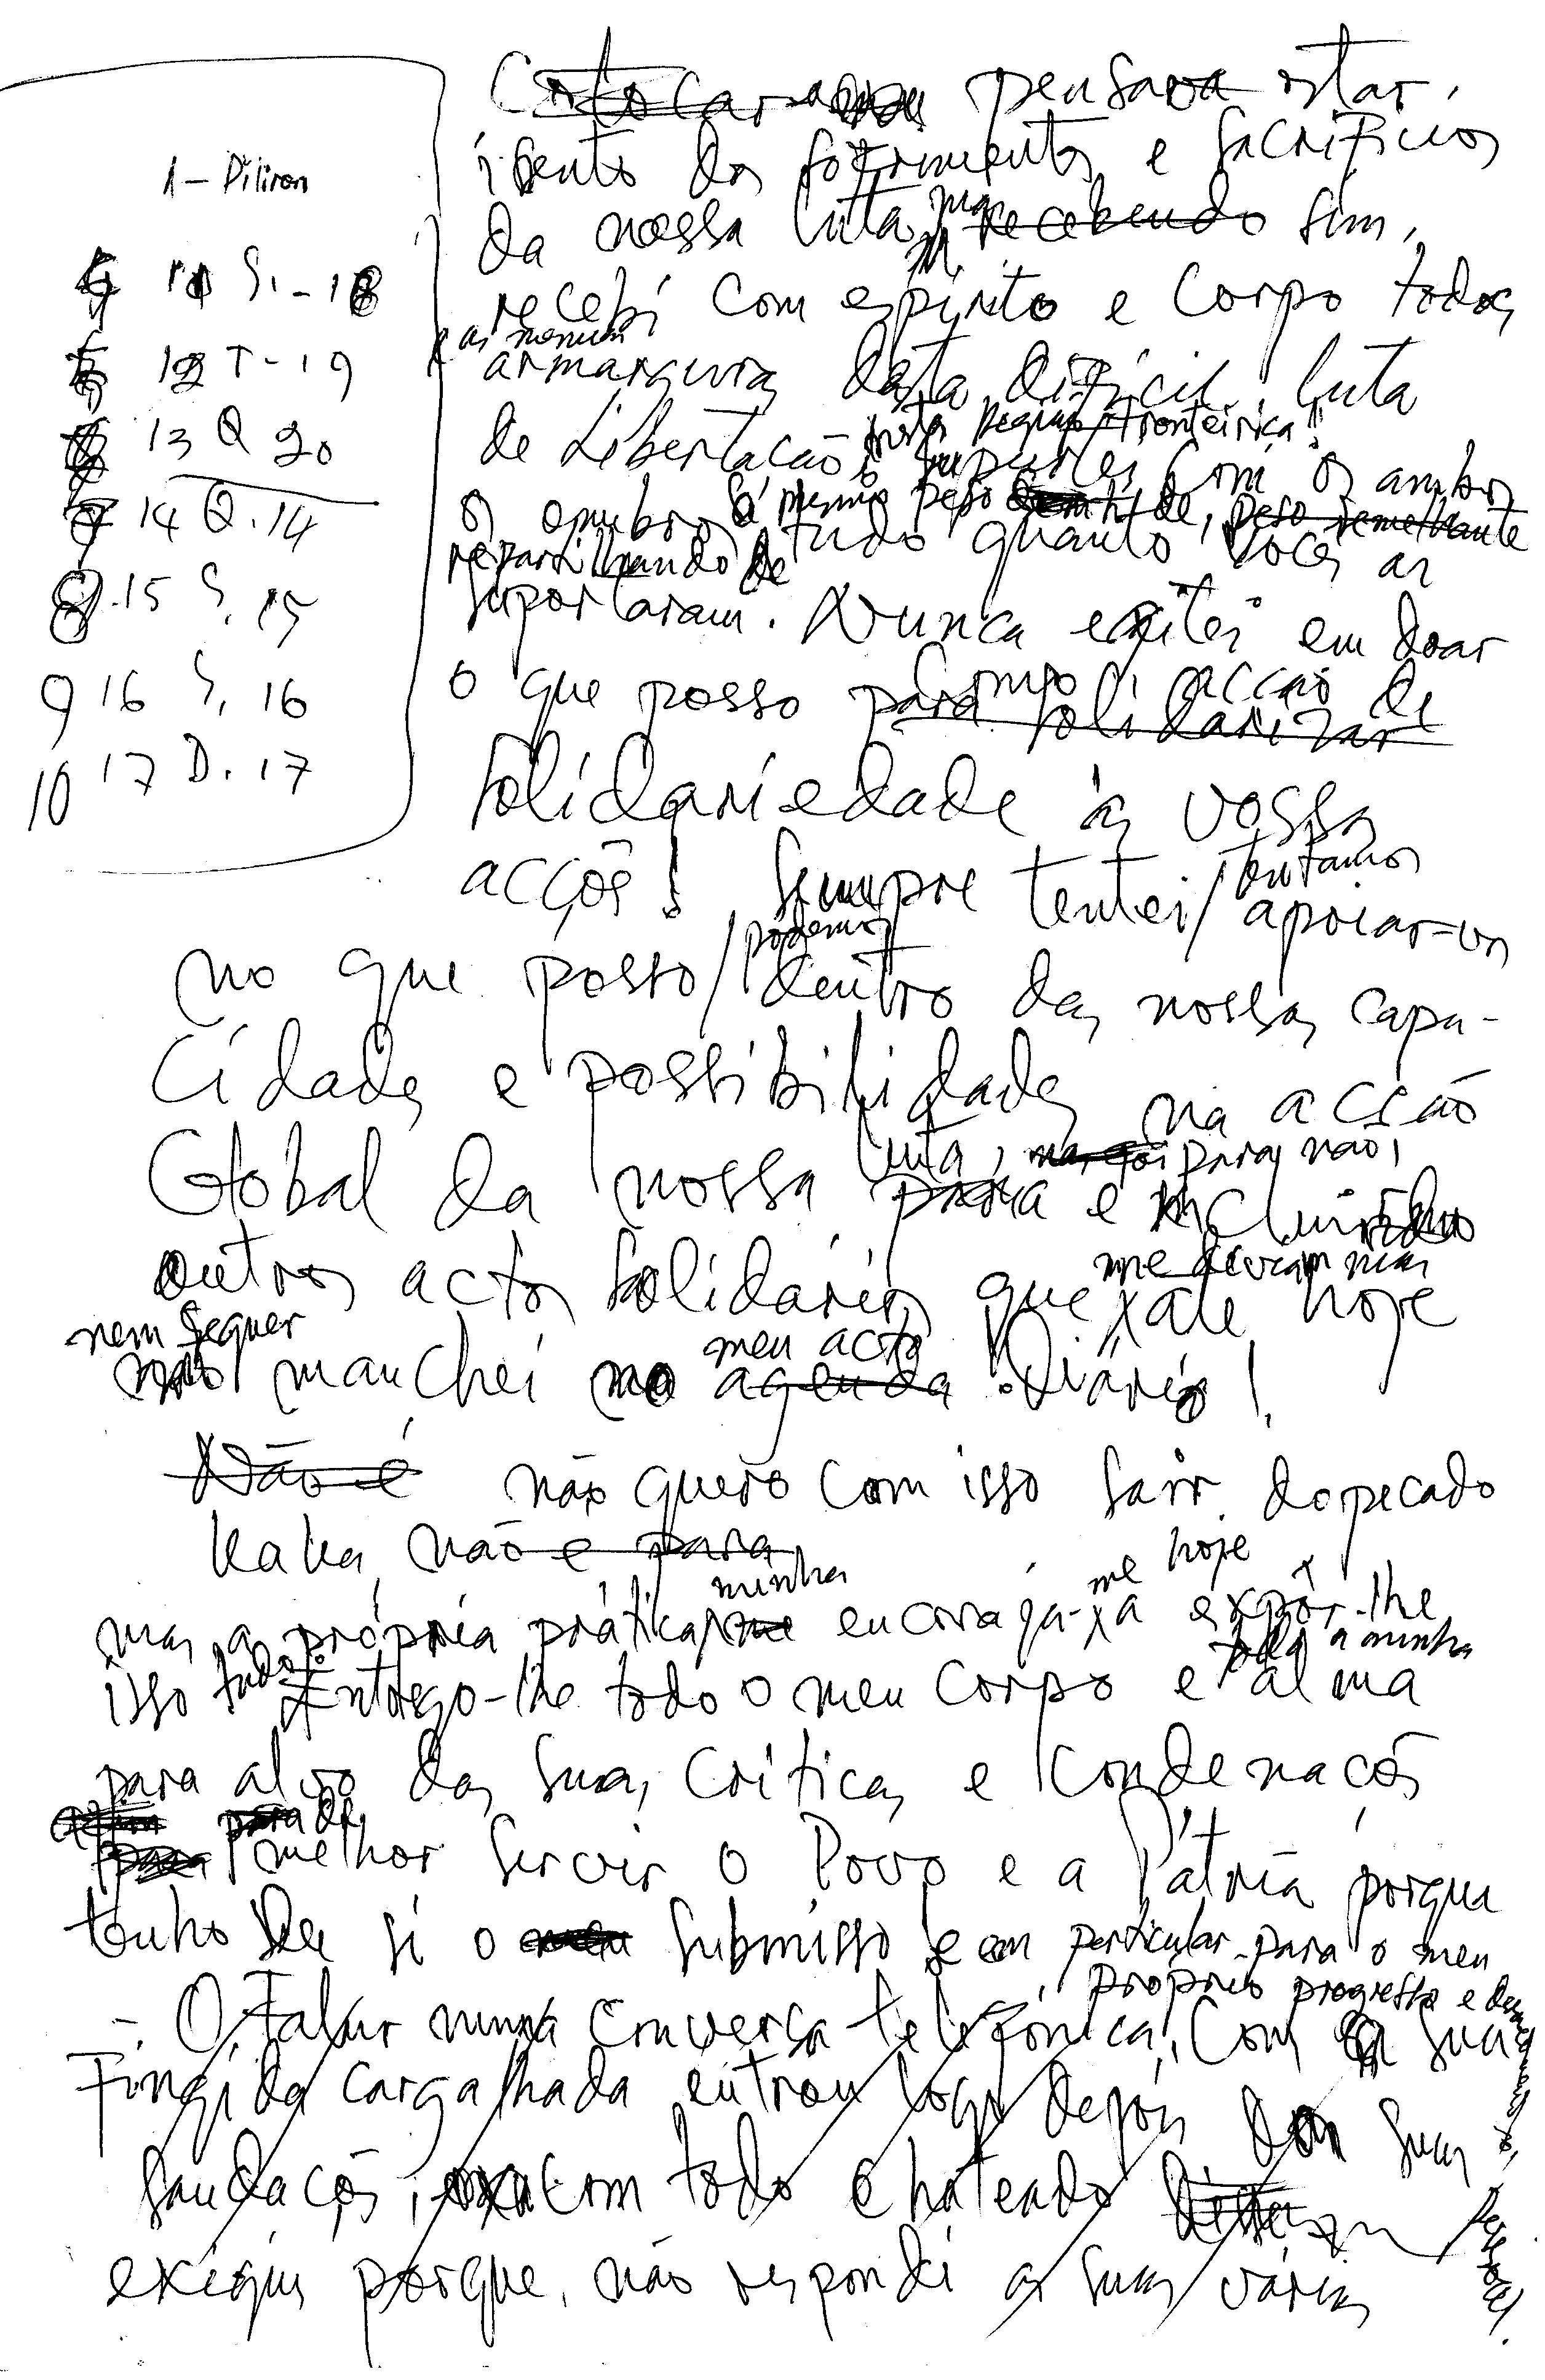 1 - Piliron
11 S. - 18
12 T - 19
13 Q 20
14 Q. 14
8 - 15 S. 15
9 16 S. 16
10 17 D. 17
pensara estar,
isento dos sofrimentos e sacrifícios
da nossa luta, mas recebendo sim,
recebi com espírito e corpo todos
as mesmas
armarguras desta difícil luta
nesta pequena fronteiriça!
de Libertação, suportei com os ombros
os ombros o mesmo peso de, peso semelhante
repartilhando de tudo quanto vocês as
suportaram. Nunca exitei em doar
como acção de
o que posso para solidarizar
solidariedade às vossas
acções! Sempre tentei/tentamos apoiar-vos
no que posso/podemos dentro das nossas capa-
cidades e possibilidades na acção
Global da nossa luta, para não,
para e incluindo
outros actos solidários que até hoje
nem sequer
manchei no meu acto agenda Diário!
Não é não quero com isso sair do pecado
Kaka, não é para
minha me hoje
mas a própria prática me encoraja-me a expôr-lhe
isso tudo. Entrego-lhe todo o meu corpo e toda a minha alma
para alvo das suas críticas e condenações
para de
para melhor servir o Povo e a Pátria porque
tenho de si o submisso e em particular para o meu
próprio progresso e
- O falar numa conversa telefónica, com a sua
Fingida cargalhada entrou logo depois das suas
saudações, com todo chateado
exigiu porque, não respondi as suas várias